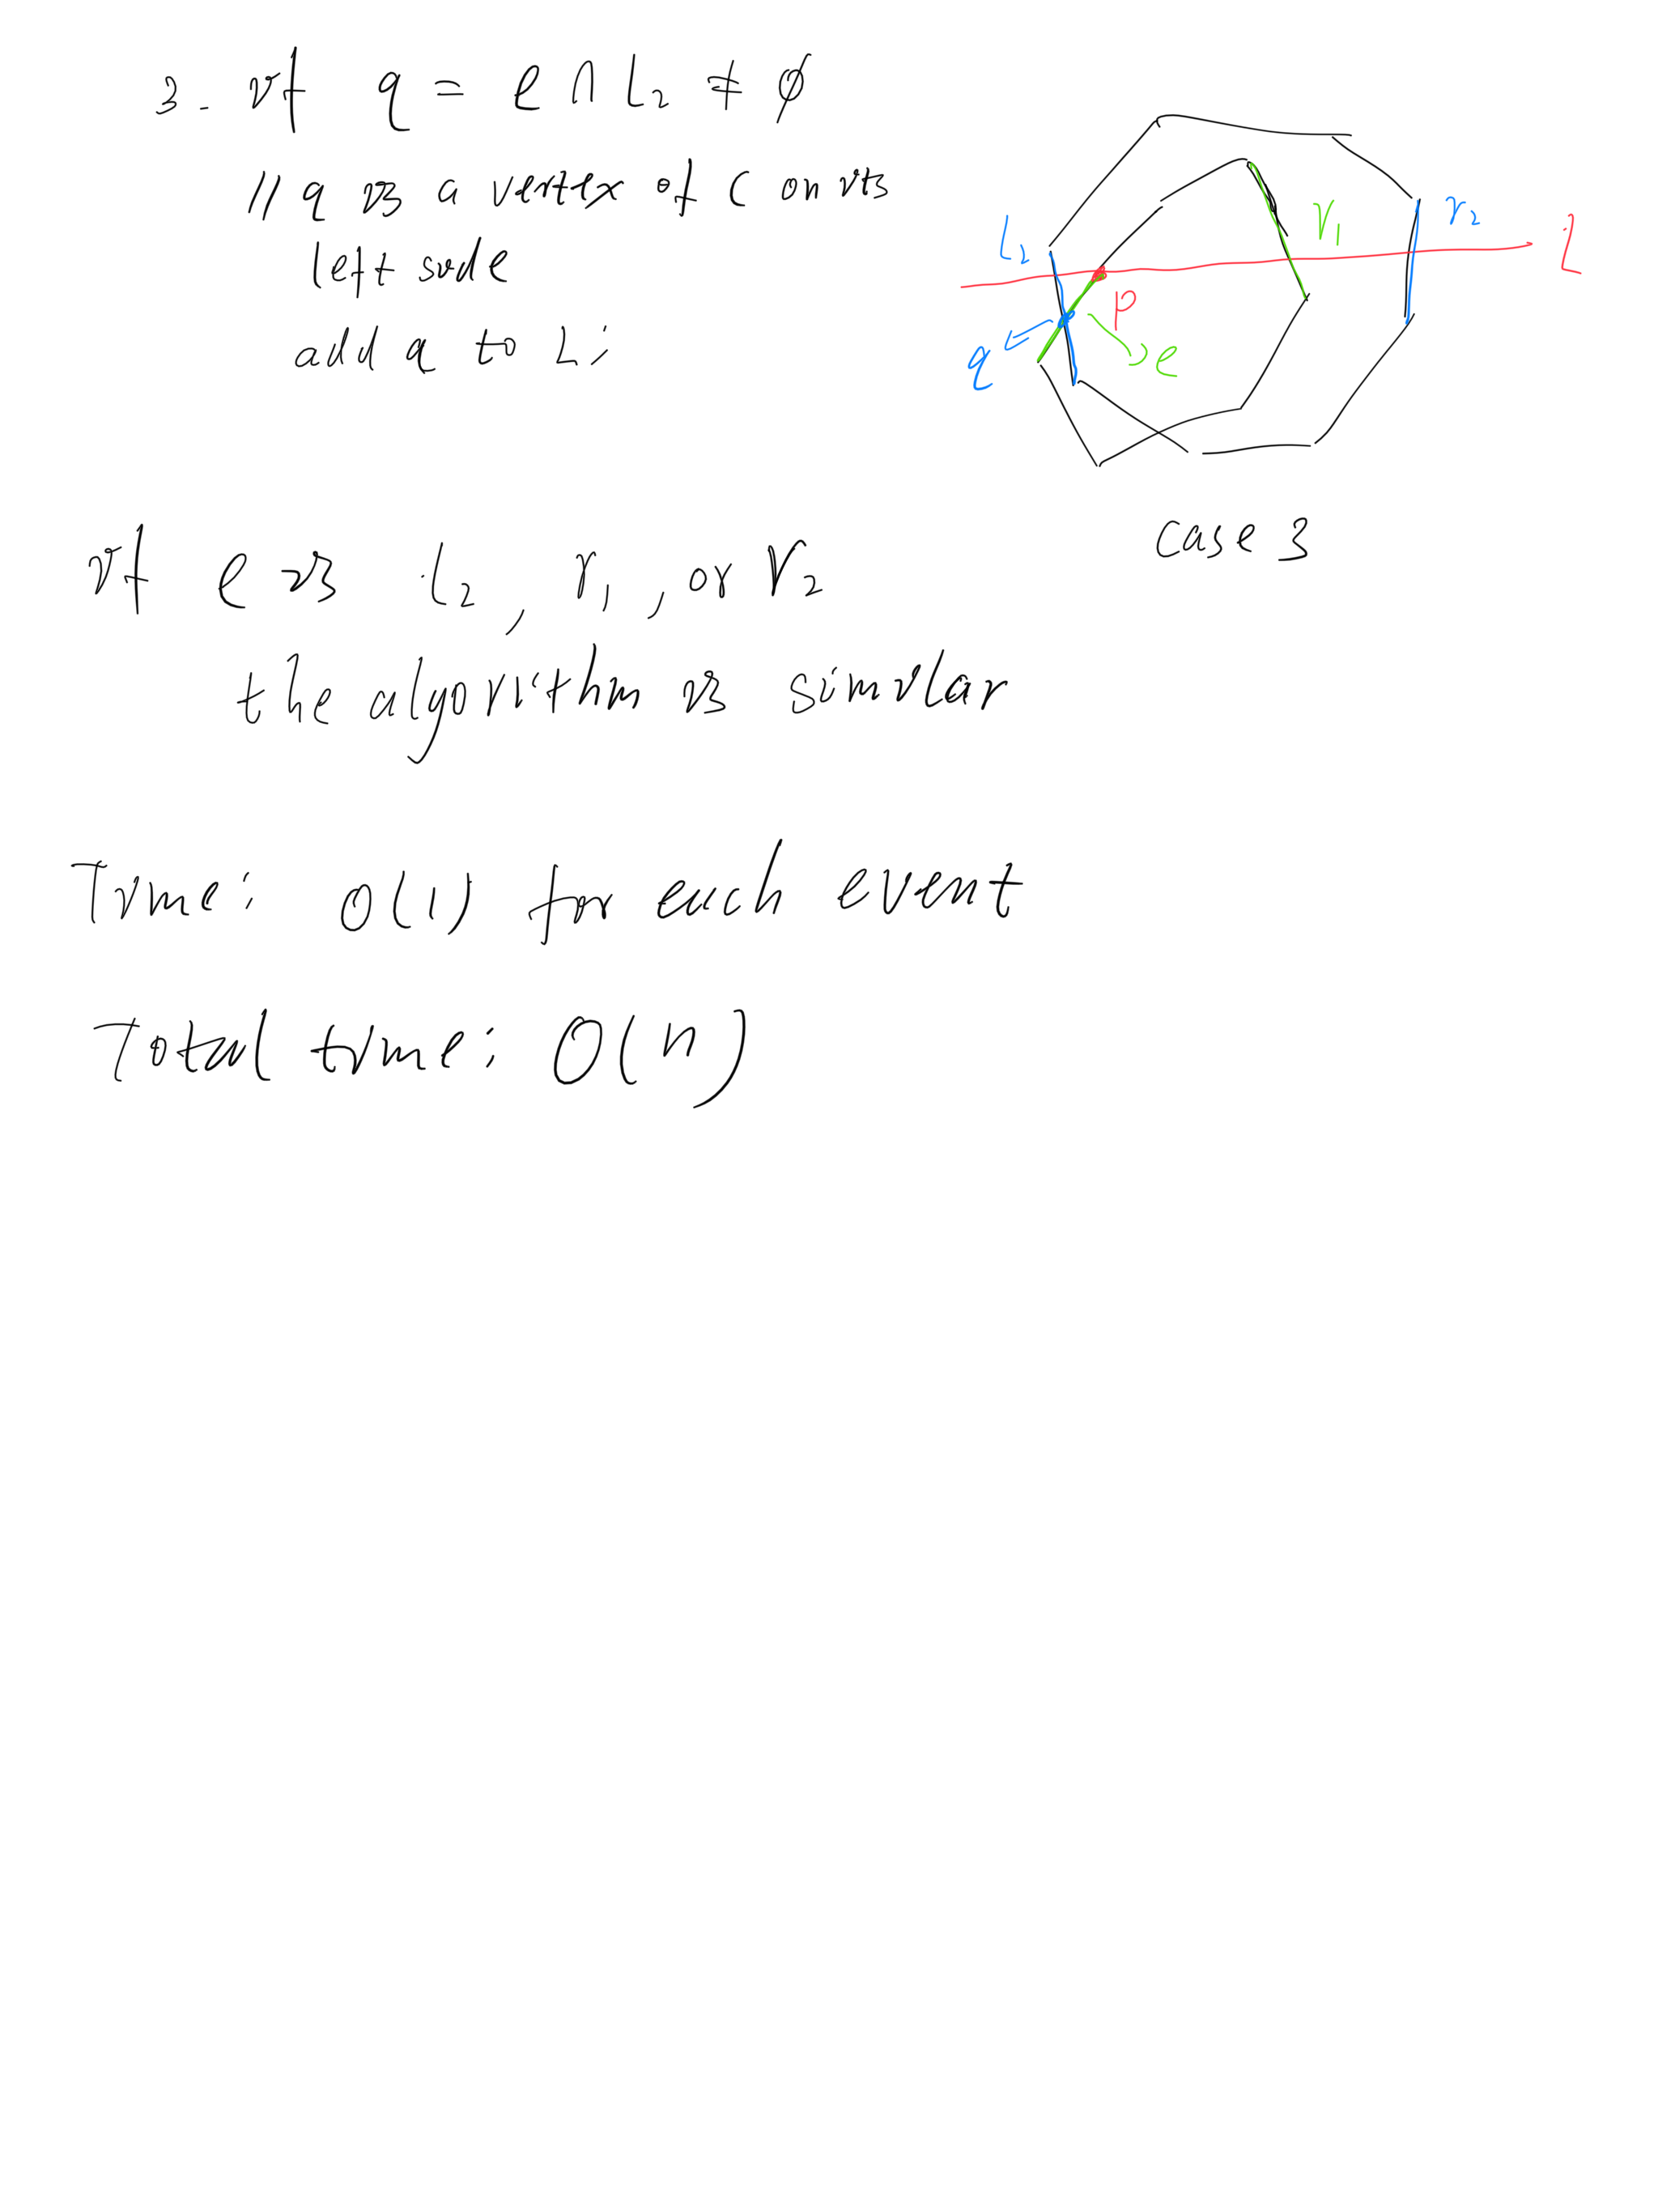 3. if q = e ∩ l₂ ≠ ∅
// q is a vertex of C on its
left side
add q to L;
l₂
r₁
r₂
l
p
q
e
case 3
if e is l₂, r₁, or r₂
the algorithm is similar
Time: O(1) for each event
Total time: O(n)